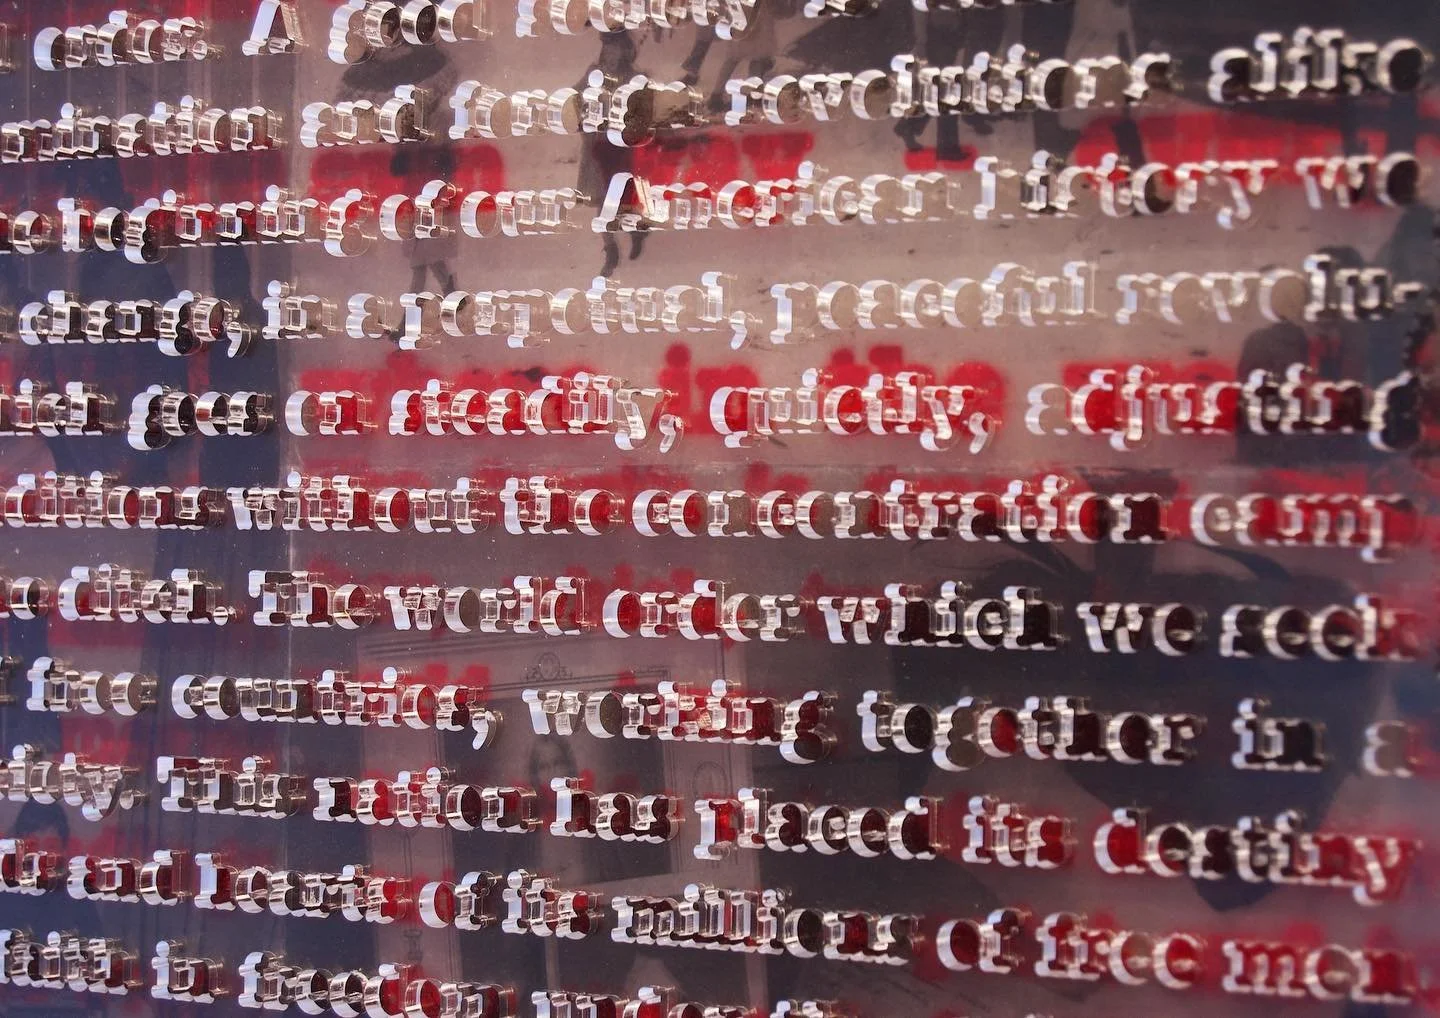 order. A good society is
mination and foreign revolutions alike
e beginning of our American history we
change, in a perpetual, peaceful revolu-
ich goes on steadily, quietly, adjusting
ditions without the concentration camp
e ditch. The world order which we seek
free countries, working together in a
iety. This nation has placed its destiny
ds and hearts of its millions of free men
faith in freedom under